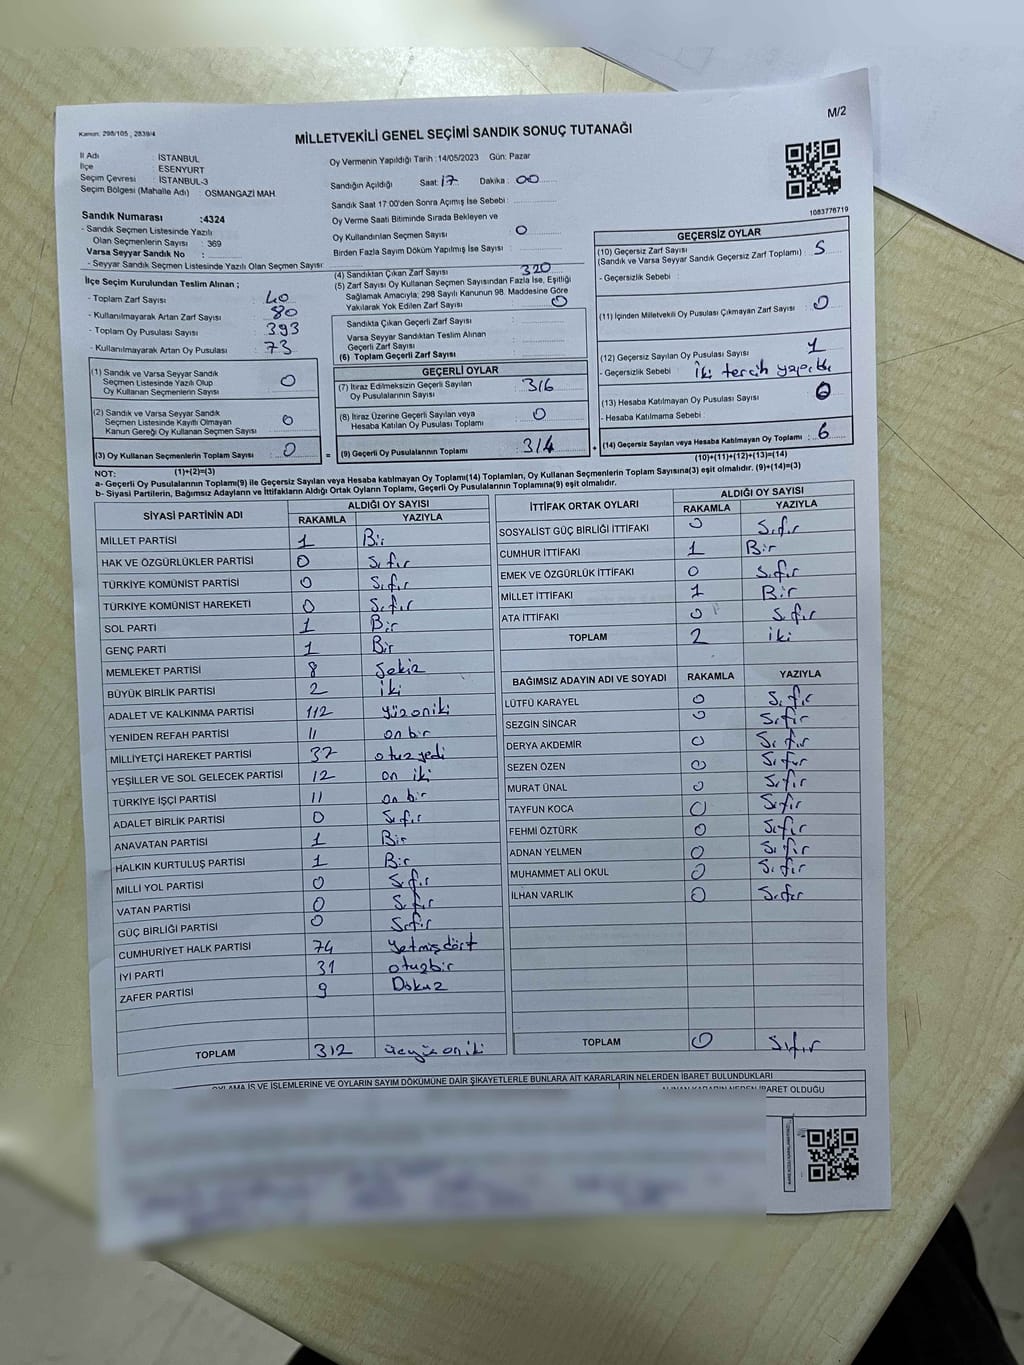 M/2
Kanun: 298/105 , 2839/4
MİLLETVEKİLİ GENEL SEÇİMİ SANDIK SONUÇ TUTANAĞI
İl Adı : İSTANBUL
İlçe : ESENYURT
Seçim Çevresi : İSTANBUL-3
Seçim Bölgesi (Mahalle Adı) : OSMANGAZİ MAH.
Oy Vermenin Yapıldığı Tarih : 14/05/2023 Gün: Pazar
Sandığın Açıldığı Saat: 17 Dakika : 00
Sandık Saat 17:00'den Sonra Açımış İse Sebebi :
Oy Verme Saati Bitiminde Sırada Bekleyen ve
Oy Kullandırılan Seçmen Sayısı : 0
Birden Fazla Sayım Döküm Yapılmış İse Sayısı :
1083776719
Sandık Numarası :4324
- Sandık Seçmen Listesinde Yazılı
Olan Seçmenlerin Sayısı : 369
Varsa Seyyar Sandık No :
- Seyyar Sandık Seçmen Listesinde Yazılı Olan Seçmen Sayısı:
İlçe Seçim Kurulundan Teslim Alınan ;
- Toplam Zarf Sayısı : 40
- Kullanılmayarak Artan Zarf Sayısı : 80
- Toplam Oy Pusulası Sayısı : 393
- Kullanılmayarak Artan Oy Pusulası : 73
(1) Sandık ve Varsa Seyyar Sandık
Seçmen Listesinde Yazılı Olup
Oy Kullanan Seçmenlerin Sayısı : 0
(2) Sandık ve Varsa Seyyar Sandık
Seçmen Listesinde Kayıtlı Olmayan
Kanun Gereği Oy Kullanan Seçmen Sayısı : 0
(3) Oy Kullanan Seçmenlerin Toplam Sayısı : 0
(1)+(2)=(3)
(4) Sandıktan Çıkan Zarf Sayısı : 320
(5) Zarf Sayısı Oy Kullanan Seçmen Sayısından Fazla İse, Eşitliği
Sağlamak Amacıyla; 298 Sayılı Kanunun 98. Maddesine Göre
Yakılarak Yok Edilen Zarf Sayısı : 0
Sandıkta Çıkan Geçerli Zarf Sayısı :
Varsa Seyyar Sandıktan Teslim Alınan
Geçerli Zarf Sayısı :
(6) Toplam Geçerli Zarf Sayısı :
GEÇERLİ OYLAR
(7) İtiraz Edilmeksizin Geçerli Sayılan
Oy Pusulalarının Sayısı : 316
(8) İtiraz Üzerine Geçerli Sayılan veya
Hesaba Katılan Oy Pusulası Toplamı : 0
= (9) Geçerli Oy Pusulalarının Toplamı : 314 +
GEÇERSİZ OYLAR
(10) Geçersiz Zarf Sayısı
(Sandık ve Varsa Seyyar Sandık Geçersiz Zarf Toplamı) : 5
- Geçersizlik Sebebi :
(11) İçinden Milletvekili Oy Pusulası Çıkmayan Zarf Sayısı : 0
(12) Geçersiz Sayılan Oy Pusulası Sayısı : 1
- Geçersizlik Sebebi : iki tercih yapıldı
(13) Hesaba Katılmayan Oy Pusulası Sayısı : 0
- Hesaba Katılmama Sebebi :
(14) Geçersiz Sayılan veya Hesaba Katılmayan Oy Toplamı : 6
(10)+(11)+(12)+(13)=(14)
NOT:
a- Geçerli Oy Pusulalarının Toplamı(9) ile Geçersiz Sayılan veya Hesaba katılmayan Oy Toplamı(14) Toplamları, Oy Kullanan Seçmenlerin Toplam Sayısına(3) eşit olmalıdır. (9)+(14)=(3)
b- Siyasi Partilerin, Bağımsız Adayların ve İttifakların Aldığı Ortak Oyların Toplamı, Geçerli Oy Pusulalarının Toplamına(9) eşit olmalıdır.
SİYASİ PARTİNİN ADI ALDIĞI OY SAYISI
RAKAMLA YAZIYLA
MİLLET PARTİSİ 1 Bir
HAK VE ÖZGÜRLÜKLER PARTİSİ 0 Sıfır
TÜRKİYE KOMÜNİST PARTİSİ 0 Sıfır
TÜRKİYE KOMÜNİST HAREKETİ 0 Sıfır
SOL PARTİ 1 Bir
GENÇ PARTİ 1 Bir
MEMLEKET PARTİSİ 8 Sekiz
BÜYÜK BİRLİK PARTİSİ 2 iki
ADALET VE KALKINMA PARTİSİ 112 yüzoniki
YENİDEN REFAH PARTİSİ 11 onbir
MİLLİYETÇİ HAREKET PARTİSİ 37 otuzyedi
YEŞİLLER VE SOL GELECEK PARTİSİ 12 on iki
TÜRKİYE İŞÇİ PARTİSİ 11 on bir
ADALET BİRLİK PARTİSİ 0 Sıfır
ANAVATAN PARTİSİ 1 Bir
HALKIN KURTULUŞ PARTİSİ 1 Bir
MİLLİ YOL PARTİSİ 0 Sıfır
VATAN PARTİSİ 0 Sıfır
GÜÇ BİRLİĞİ PARTİSİ 0 Sıfır
CUMHURİYET HALK PARTİSİ 74 yetmişdört
İYİ PARTİ 31 otuzbir
ZAFER PARTİSİ 9 Dokuz
TOPLAM 312 üçyüzoniki
İTTİFAK ORTAK OYLARI ALDIĞI OY SAYISI
RAKAMLA YAZIYLA
SOSYALİST GÜÇ BİRLİĞİ İTTİFAKI 0 Sıfır
CUMHUR İTTİFAKI 1 Bir
EMEK VE ÖZGÜRLÜK İTTİFAKI 0 Sıfır
MİLLET İTTİFAKI 1 Bir
ATA İTTİFAKI 0 Sıfır
TOPLAM 2 iki
BAĞIMSIZ ADAYIN ADI VE SOYADI RAKAMLA YAZIYLA
LÜTFÜ KARAYEL 0 Sıfır
SEZGİN SİNCAR 0 Sıfır
DERYA AKDEMİR 0 Sıfır
SEZEN ÖZEN 0 Sıfır
MURAT ÜNAL 0 Sıfır
TAYFUN KOCA 0 Sıfır
FEHMİ ÖZTÜRK 0 Sıfır
ADNAN YELMEN 0 Sıfır
MUHAMMET ALİ OKUL 0 Sıfır
İLHAN VARLIK 0 Sıfır
TOPLAM 0 Sıfır
OYLAMA İŞ VE İŞLEMLERİNE VE OYLARIN SAYIM DÖKÜMÜNE DAİR ŞİKAYETLERLE BUNLARA AİT KARARLARIN NELERDEN İBARET BULUNDUKLARI
ALINAN KARARIN NEDEN İBARET OLDUĞU